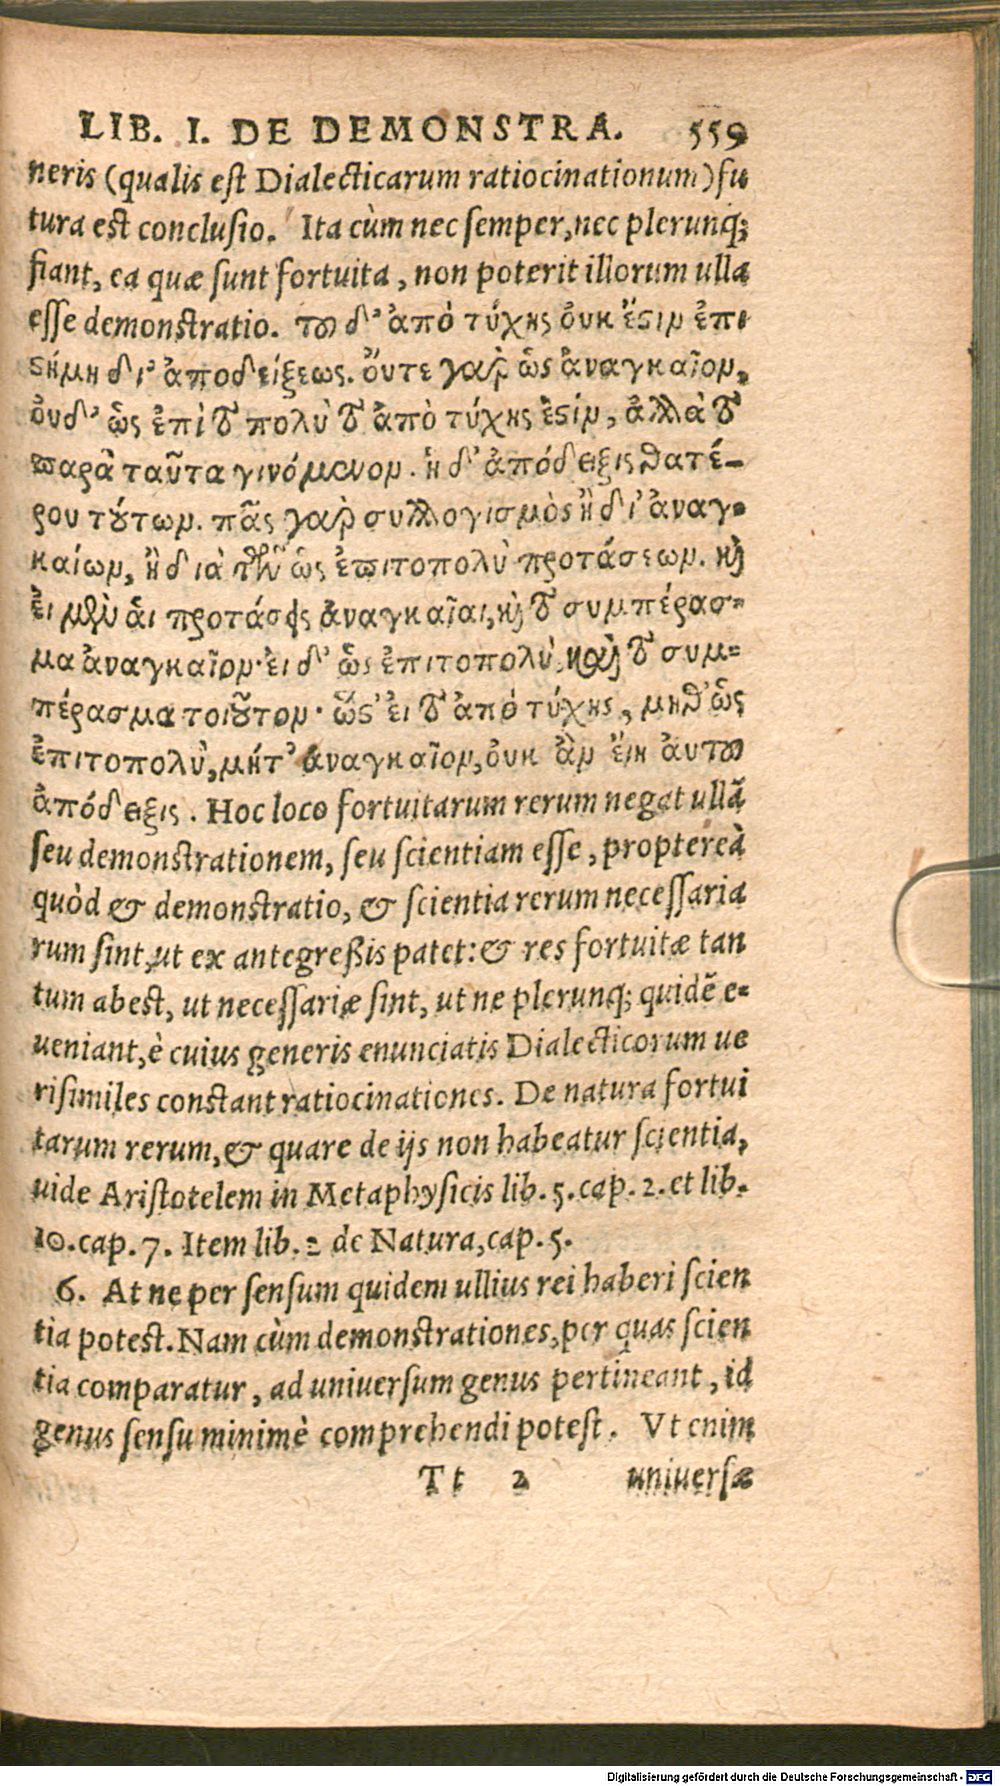 LIB. I. DE DEMONSTRA. 559
neris (qualis est Dialecticarum ratiocinationum) fu
tura est conclusio. Ita cùm nec semper, nec plerunq;
fiant, ea quæ sunt fortuita, non poterit illorum ulla
esse demonstratio. τοῦ δ' ἀπό τύχης ὀυκ ἔστιν ἐπι
στήμη δι' ἀποδείξεως. ὄυτε γὰρ ὡς ἀναγκαῖον,
ὀυδ' ὡς ἐπὶ τὸ πολὺ τὸ ἀπὸ τύχης ἐστίν, ἀλλὰ τὸ
παρὰ ταῦτα γινόμενον. ἡ δ' ἀπόδειξις θατέ-
ρου τούτων. πᾶς γὰρ συλλογισμὸς ἢ δι' ἀναγ-
καίων, ἢ διὰ τῶν ὡς ἐπιτοπολὺ προτάσεων. καὶ
ἐι μὲν ἁι προτάσεις ἀναγκαῖαι, καὶ τὸ συμπέρασ-
μα ἀναγκαῖον· ἐι δ' ὡς ἐπιτοπολὺ, καὶ τὸ συμ-
πέρασμα τοιοῦτον· ὥστ' ἐι τὸ ἀπό τύχης, μήθ' ὡς
ἐπιτοπολὺ, μήτ' ἀναγκαῖον, ὀυκ ἂν ἔιη ἀυτοῦ
ἀπόδειξις. Hoc loco fortuitarum rerum negat ullã
seu demonstrationem, seu scientiam esse, proptereà
quòd & demonstratio, & scientia rerum necessaria
rum sint, ut ex antegreßis patet: & res fortuitæ tan
tum abest, ut necessariæ sint, ut ne plerunq; quidẽ e-
ueniant, è cuius generis enunciatis Dialecticorum ue
risimiles constant ratiocinationes. De natura fortui
tarum rerum, & quare de ijs non habeatur scientia,
uide Aristotelem in Metaphysicis lib. 5. cap. 2. et lib.
10. cap. 7. Item lib. 2 de Natura, cap. 5.
6. At ne per sensum quidem ullius rei haberi scien
tia potest. Nam cùm demonstrationes, per quas scien
tia comparatur, ad uniuersum genus pertineant, id
genus sensu minimè comprehendi potest. Vt enim
Tt 2 uniuersæ
Digitalisierung gefördert durch die Deutsche Forschungsgemeinschaft - DFG